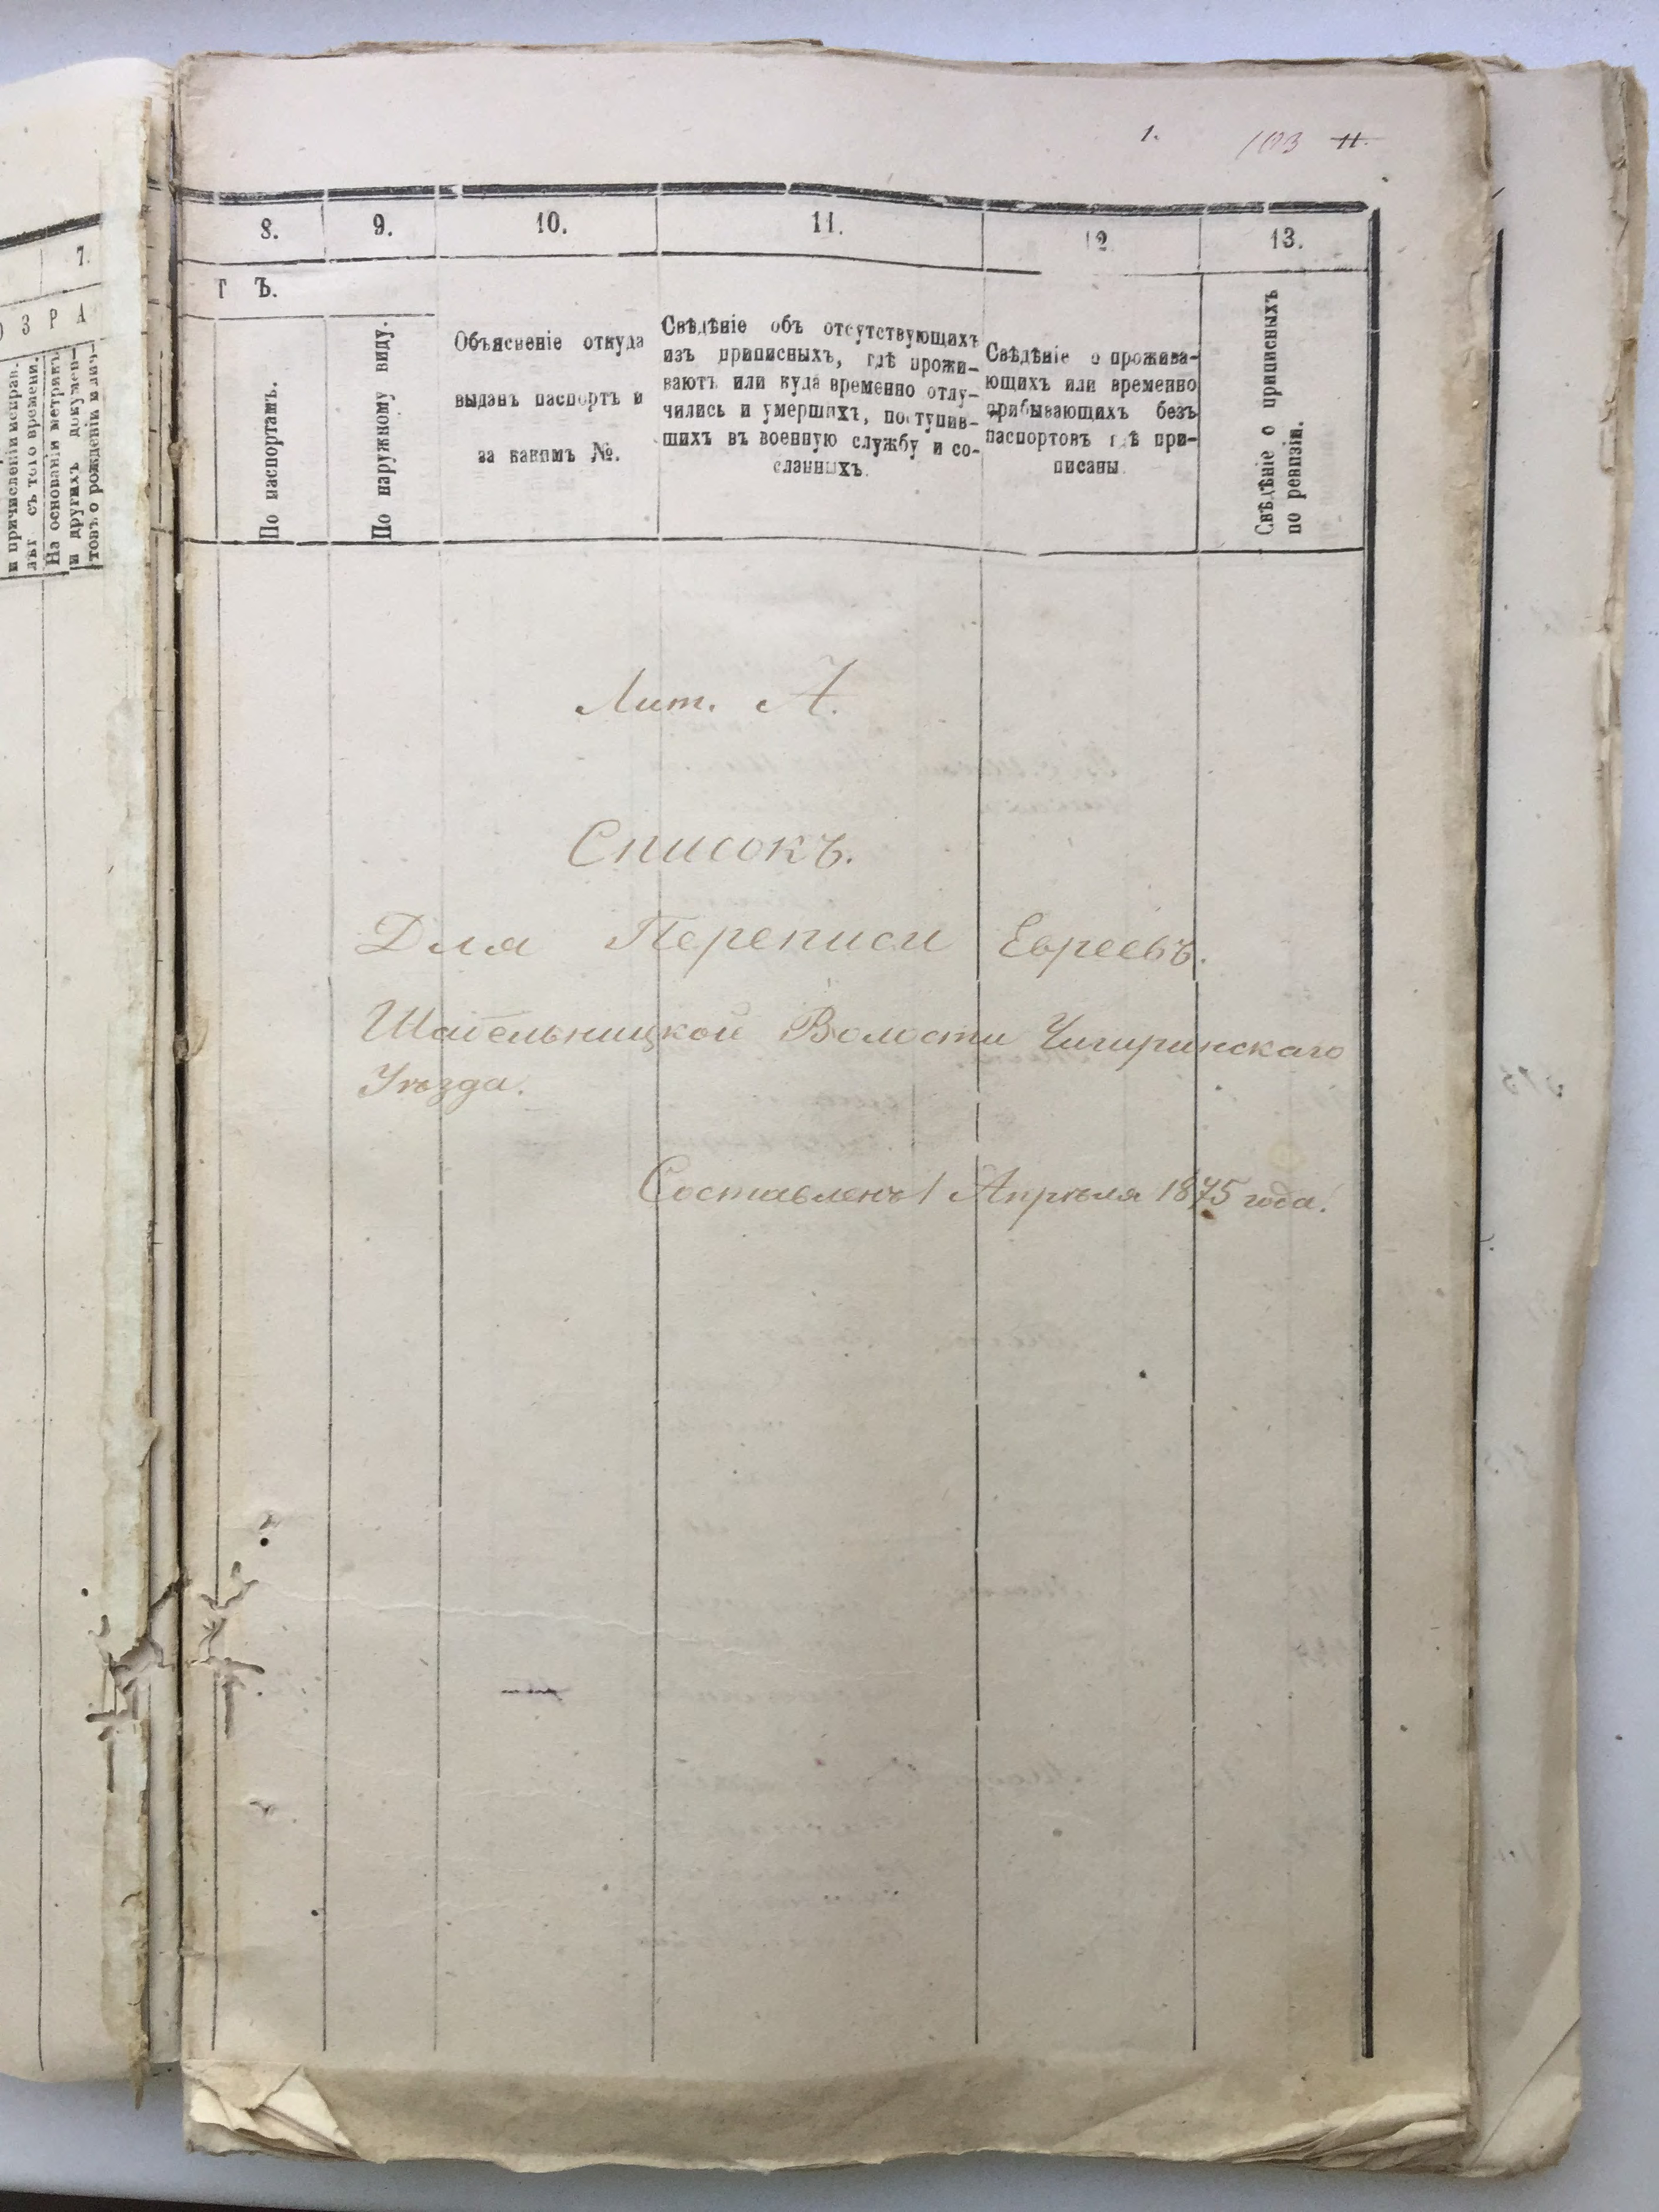 1. 103 11.
7.
О З Р А
и причисленіи исправ.
лѣт съ того времени.
На основаніи метрикъ
и другихъ докумен-
товъ о рожденіи
8. 9. 10. 11. 12 13.
Г Ъ.
По паспортамъ.
По наружному виду.
Объясненіе откуда
выданъ паспортъ и
за какимъ №.
Свѣдѣніе объ отсутствующихъ
изъ приписныхъ, гдѣ прожи-
ваютъ или куда временно отлу-
чились и умершихъ, поступив-
шихъ въ военную службу и со-
сланныхъ.
Свѣдѣніе о прожива-
ющихъ или временно
прибывающихъ безъ
паспортовъ гдѣ при-
писаны
Свѣдѣніе о приписныхъ
по ревизіи.
Лит. А.
Списокъ.
Для Переписи Евреевъ.
Шабельницкой Волости Чигиринскаго
Уѣзда.
Составленъ 1 Апрѣля 1875 года.